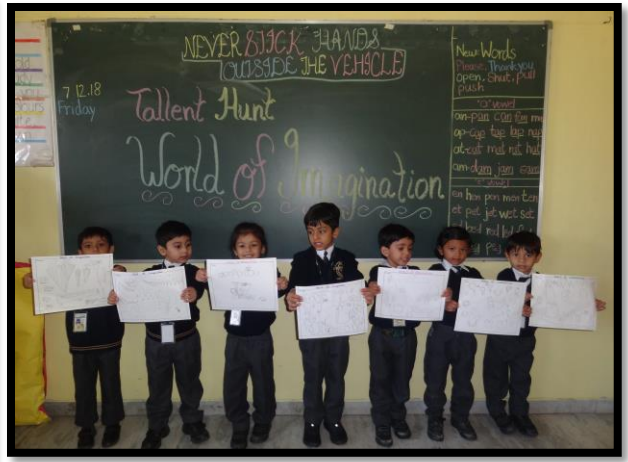 NEVER STICK HANDS
OUTSIDE THE VEHICLE
7.12.18
Friday
Tallent Hunt
World of Imagination
New Words
Please, Thankyou
open, Shut, pull
push
"a" vowel
an-pan can fan
ap-cap tap lap
at-cut mat rat hat
am-dam jam
en hen pen men ten
et pet jet wet set